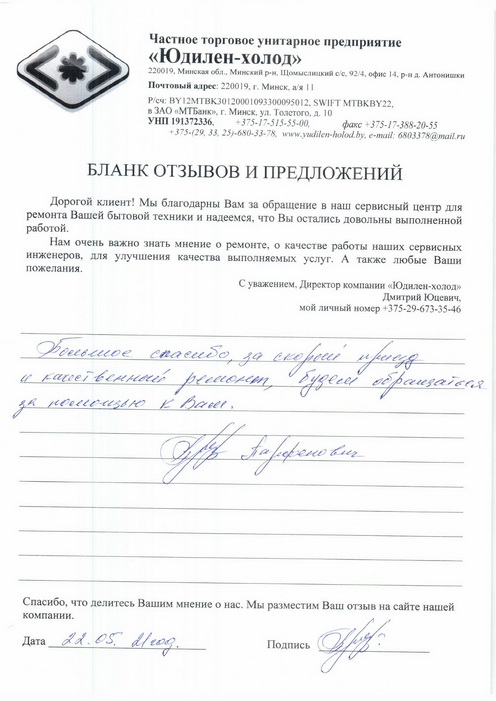 Частное торговое унитарное предприятие
«Юдилен-холод»
220019, Минская обл., Минский р-н, Щомыслицкий с/с, 92/4, офис 14, р-н д. Антонишки
Почтовый адрес: 220019, г. Минск, а/я 11
Р/сч: BY12MTBK30120001093300095012, SWIFT MTBKBY22,
в ЗАО «МТБанк», г. Минск, ул. Толстого, д. 10
УНП 191372336, +375-17-515-55-00, факс +375-17-388-20-55
+375-(29, 33, 25)-680-33-78, www.yudilen-holod.by, e-mail: 6803378@mail.ru
БЛАНК ОТЗЫВОВ И ПРЕДЛОЖЕНИЙ
Дорогой клиент! Мы благодарны Вам за обращение в наш сервисный центр для
ремонта Вашей бытовой техники и надеемся, что Вы остались довольны выполненной
работой.
Нам очень важно знать мнение о ремонте, о качестве работы наших сервисных
инженеров, для улучшения качества выполняемых услуг. А также любые Ваши
пожелания.
С уважением, Директор компании «Юдилен-холод»
Дмитрий Юцевич,
мой личный номер +375-29-673-35-46
Большое спасибо, за скорый приезд
и качественный ремонт, будем обращаться
за помощью к Вам.
Парфенович
Спасибо, что делитесь Вашим мнение о нас. Мы разместим Ваш отзыв на сайте нашей
компании.
Дата 22.05. 21 год. Подпись